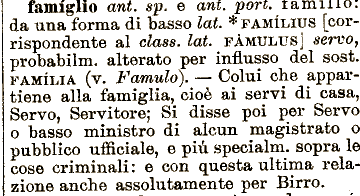 famíglio ant. sp. e ant. port. famillo:
da una forma di basso lat. *FAMÍLIUS [cor-
rispondente al class. lat. FÀMULUS] servo,
probabilm. alterato per influsso del sost.
FAMÍLIA (v. Famulo). — Colui che appar-
tiene alla famiglia, cioè ai servi di casa,
Servo, Servitore; Si disse poi per Servo
o basso ministro di alcun magistrato o
pubblico ufficiale, e piú specialm. sopra le
cose criminali: e con questa ultima rela-
zione anche assolutamente per Birro.